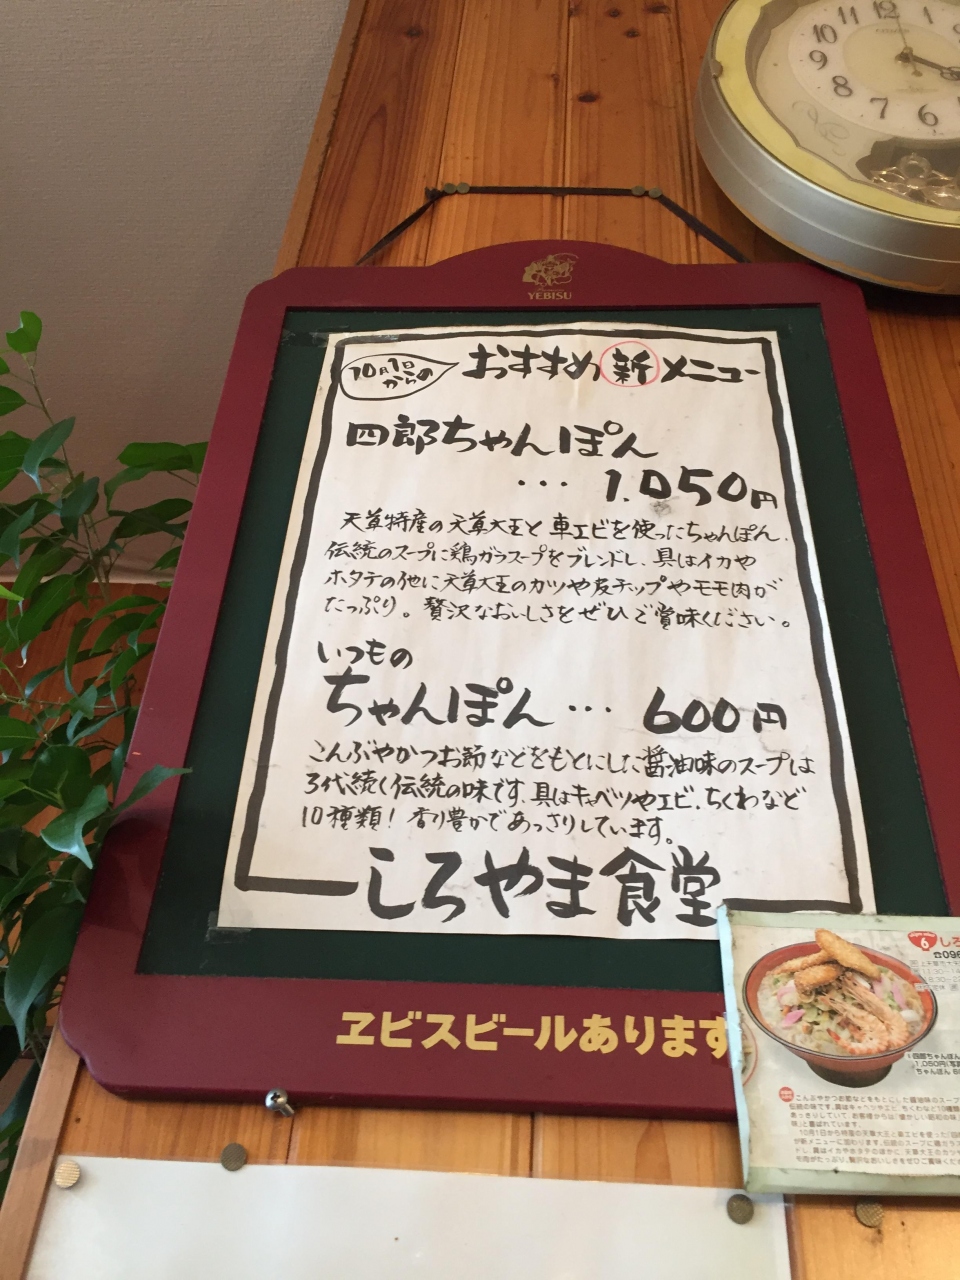 12
1
11
10
9
8
7
6
YEBISU
10月1日からの
おすすめ新メニュー
四郎ちゃんぽん
…1.050円
天草特産の天草大王と車エビを使ったちゃんぽん。
伝統のスープに鶏ガラスープをブレンドし、具はイカや
ホタテの他に天草大王のカツや皮チップやモモ肉が
たっぷり。贅沢なおいしさをぜひご賞味ください。
いつもの
ちゃんぽん…600円
こんぶやかつお節などをもとにした醤油味のスープは
3代続く伝統の味です。具はキャベツやエビ、ちくわなど
10種類!香り豊かであっさりしています。
しろやま食堂
ヱビスビールあります
6
しろ
☎096
四郎ちゃんぽん
1,050円
ちゃんぽん 60
こんぶやかつお節などをもとにした醤油味のスープ
10月1日から特産の天草大王と車エビを使った